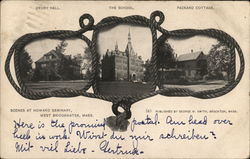 DRURY HALL. THE SCHOOL. PACKARD COTTAGE.
SCENES AT HOWARD SEMINARY,
WEST BRIDGEWATER, MASS.
PUBLISHED BY GEORGE H. SMITH, BROCKTON, MASS.
Here is the promised postal. Am head over
heels in work! Wirst du mir schreiben?
Mit viel Liebe. Gertrude.